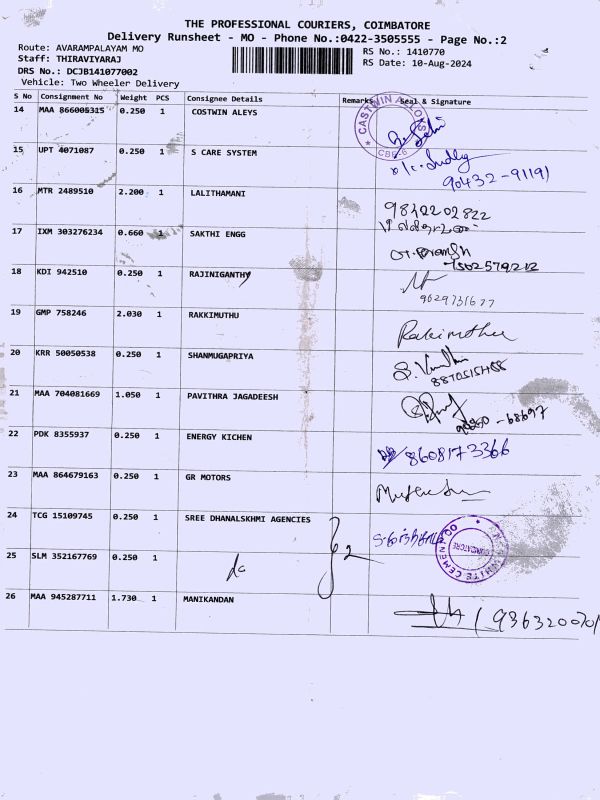 THE PROFESSIONAL COURIERS, COIMBATORE
Delivery Runsheet - MO - Phone No.:0422-3505555 - Page No.:2
Route: AVARAMPALAYAM MO
RS No.: 1410770
Staff: THIRAVIYARAJ
RS Date: 10-Aug-2024
DRS No.: DCJB141077002
Vehicle: Two Wheeler Delivery
S No Consignment No Weight PCS Consignee Details Remarks Seal & Signature
14 MAA 866005315 0.250 1 COSTWIN ALEYS
15 UPT 4071087 0.250 1 S CARE SYSTEM
90432-91191
16 MTR 2489510 2.200 1 LALITHAMANI
9842202822
17 IXM 303276234 0.660 1 SAKTHI ENGG
7502579212
18 KDI 942510 0.250 1 RAJINIGANTHY
9629731677
19 GMP 758246 2.030 1 RAKKIMUTHU
Rakkimuthu
20 KRR 50050538 0.250 1 SHANMUGAPRIYA
21 MAA 704081669 1.050 1 PAVITHRA JAGADEESH
22 PDK 8355937 0.250 1 ENERGY KICHEN
8608173366
23 MAA 864679163 0.250 1 GR MOTORS
24 TCG 15109745 0.250 1 SREE DHANALSKHMI AGENCIES
25 SLM 352167769 0.250 1
26 MAA 945287711 1.730 1 MANIKANDAN